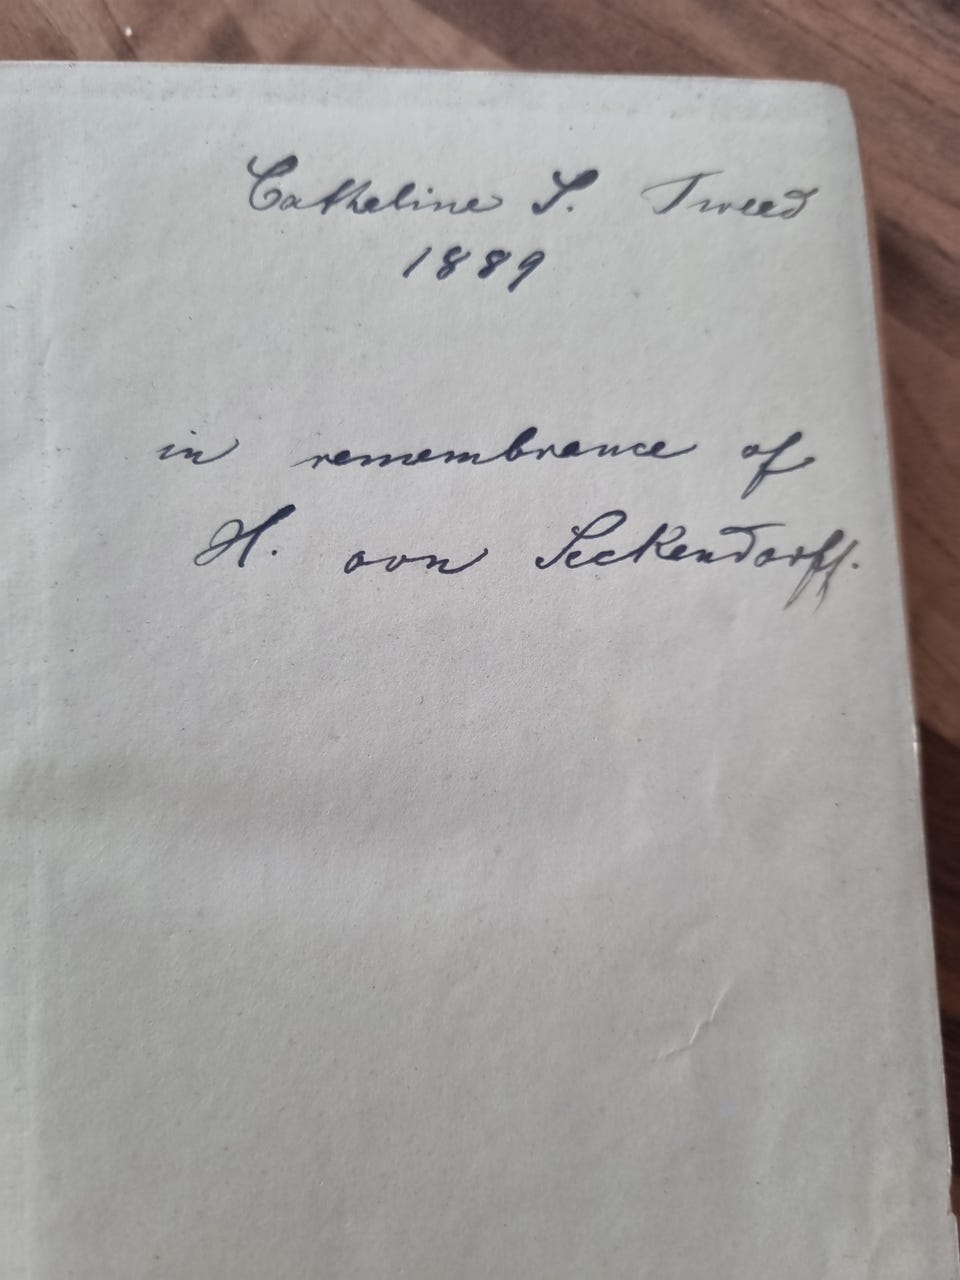 Catheline S. Tweed
1889
in remembrance of
H. von Seckendorff.